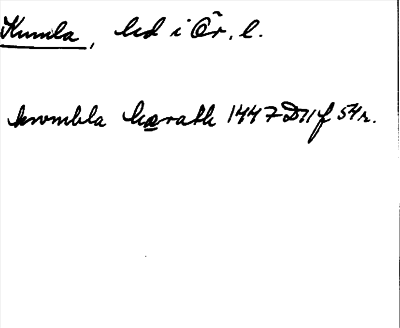 Kumla, hd i Ör. l.
kwmbla hærath 1447 D11 f 54r.